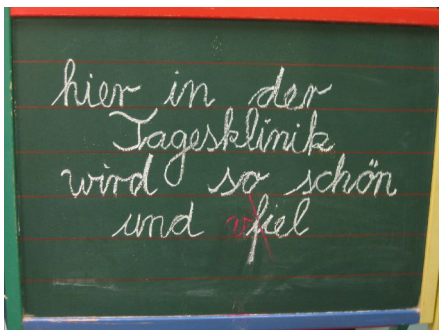 hier in der
Tagesklinik
wird so schön
und fiel